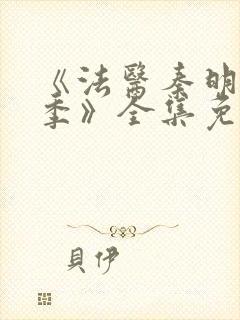 《法醫秦明
季》全集免
貝伊